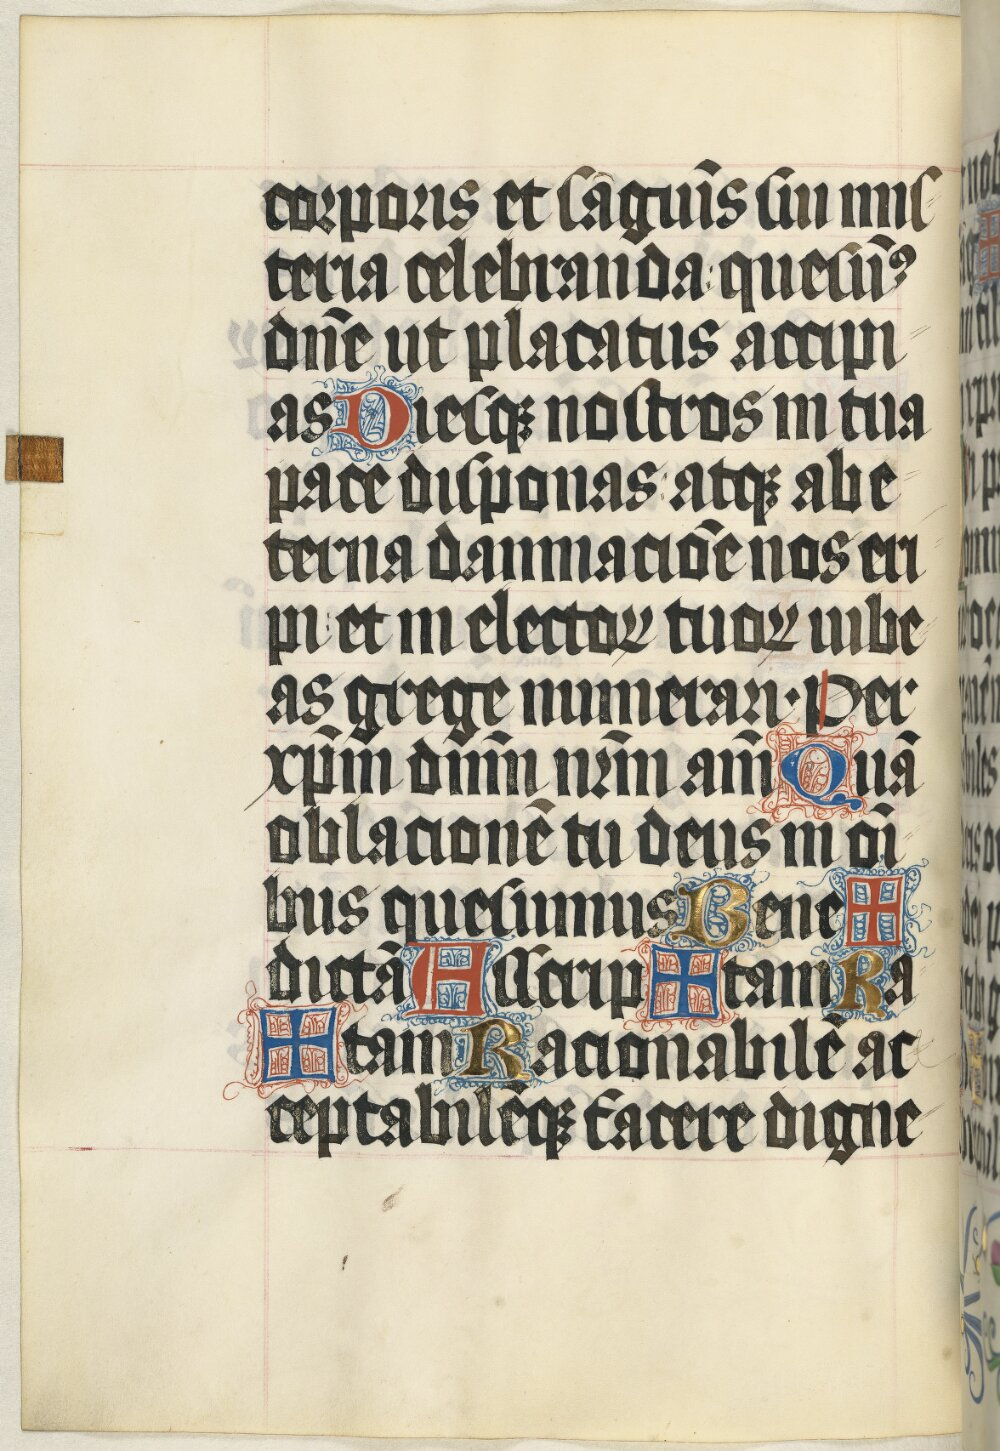 corporis et sāguīs sui mis
teria celebranda: quesūꝰ
dn̄e ut placatus accipi
as Diesqꝫ nostros in tua
pace disponas: atqꝫ ab e
terna dampnacioe̅ nos eri
pi: et in electoꝝ tuoꝝ iube
as grege numerari· Per
xp̄m dnm̄ nr̄m am̄ Quā
oblacionē tu deus in oī
bus quesumus Bene ✠
dictā Asscrip ✠ tam Ra
✠ tam Racionabilē ac
ceptabilēqꝫ facere digne